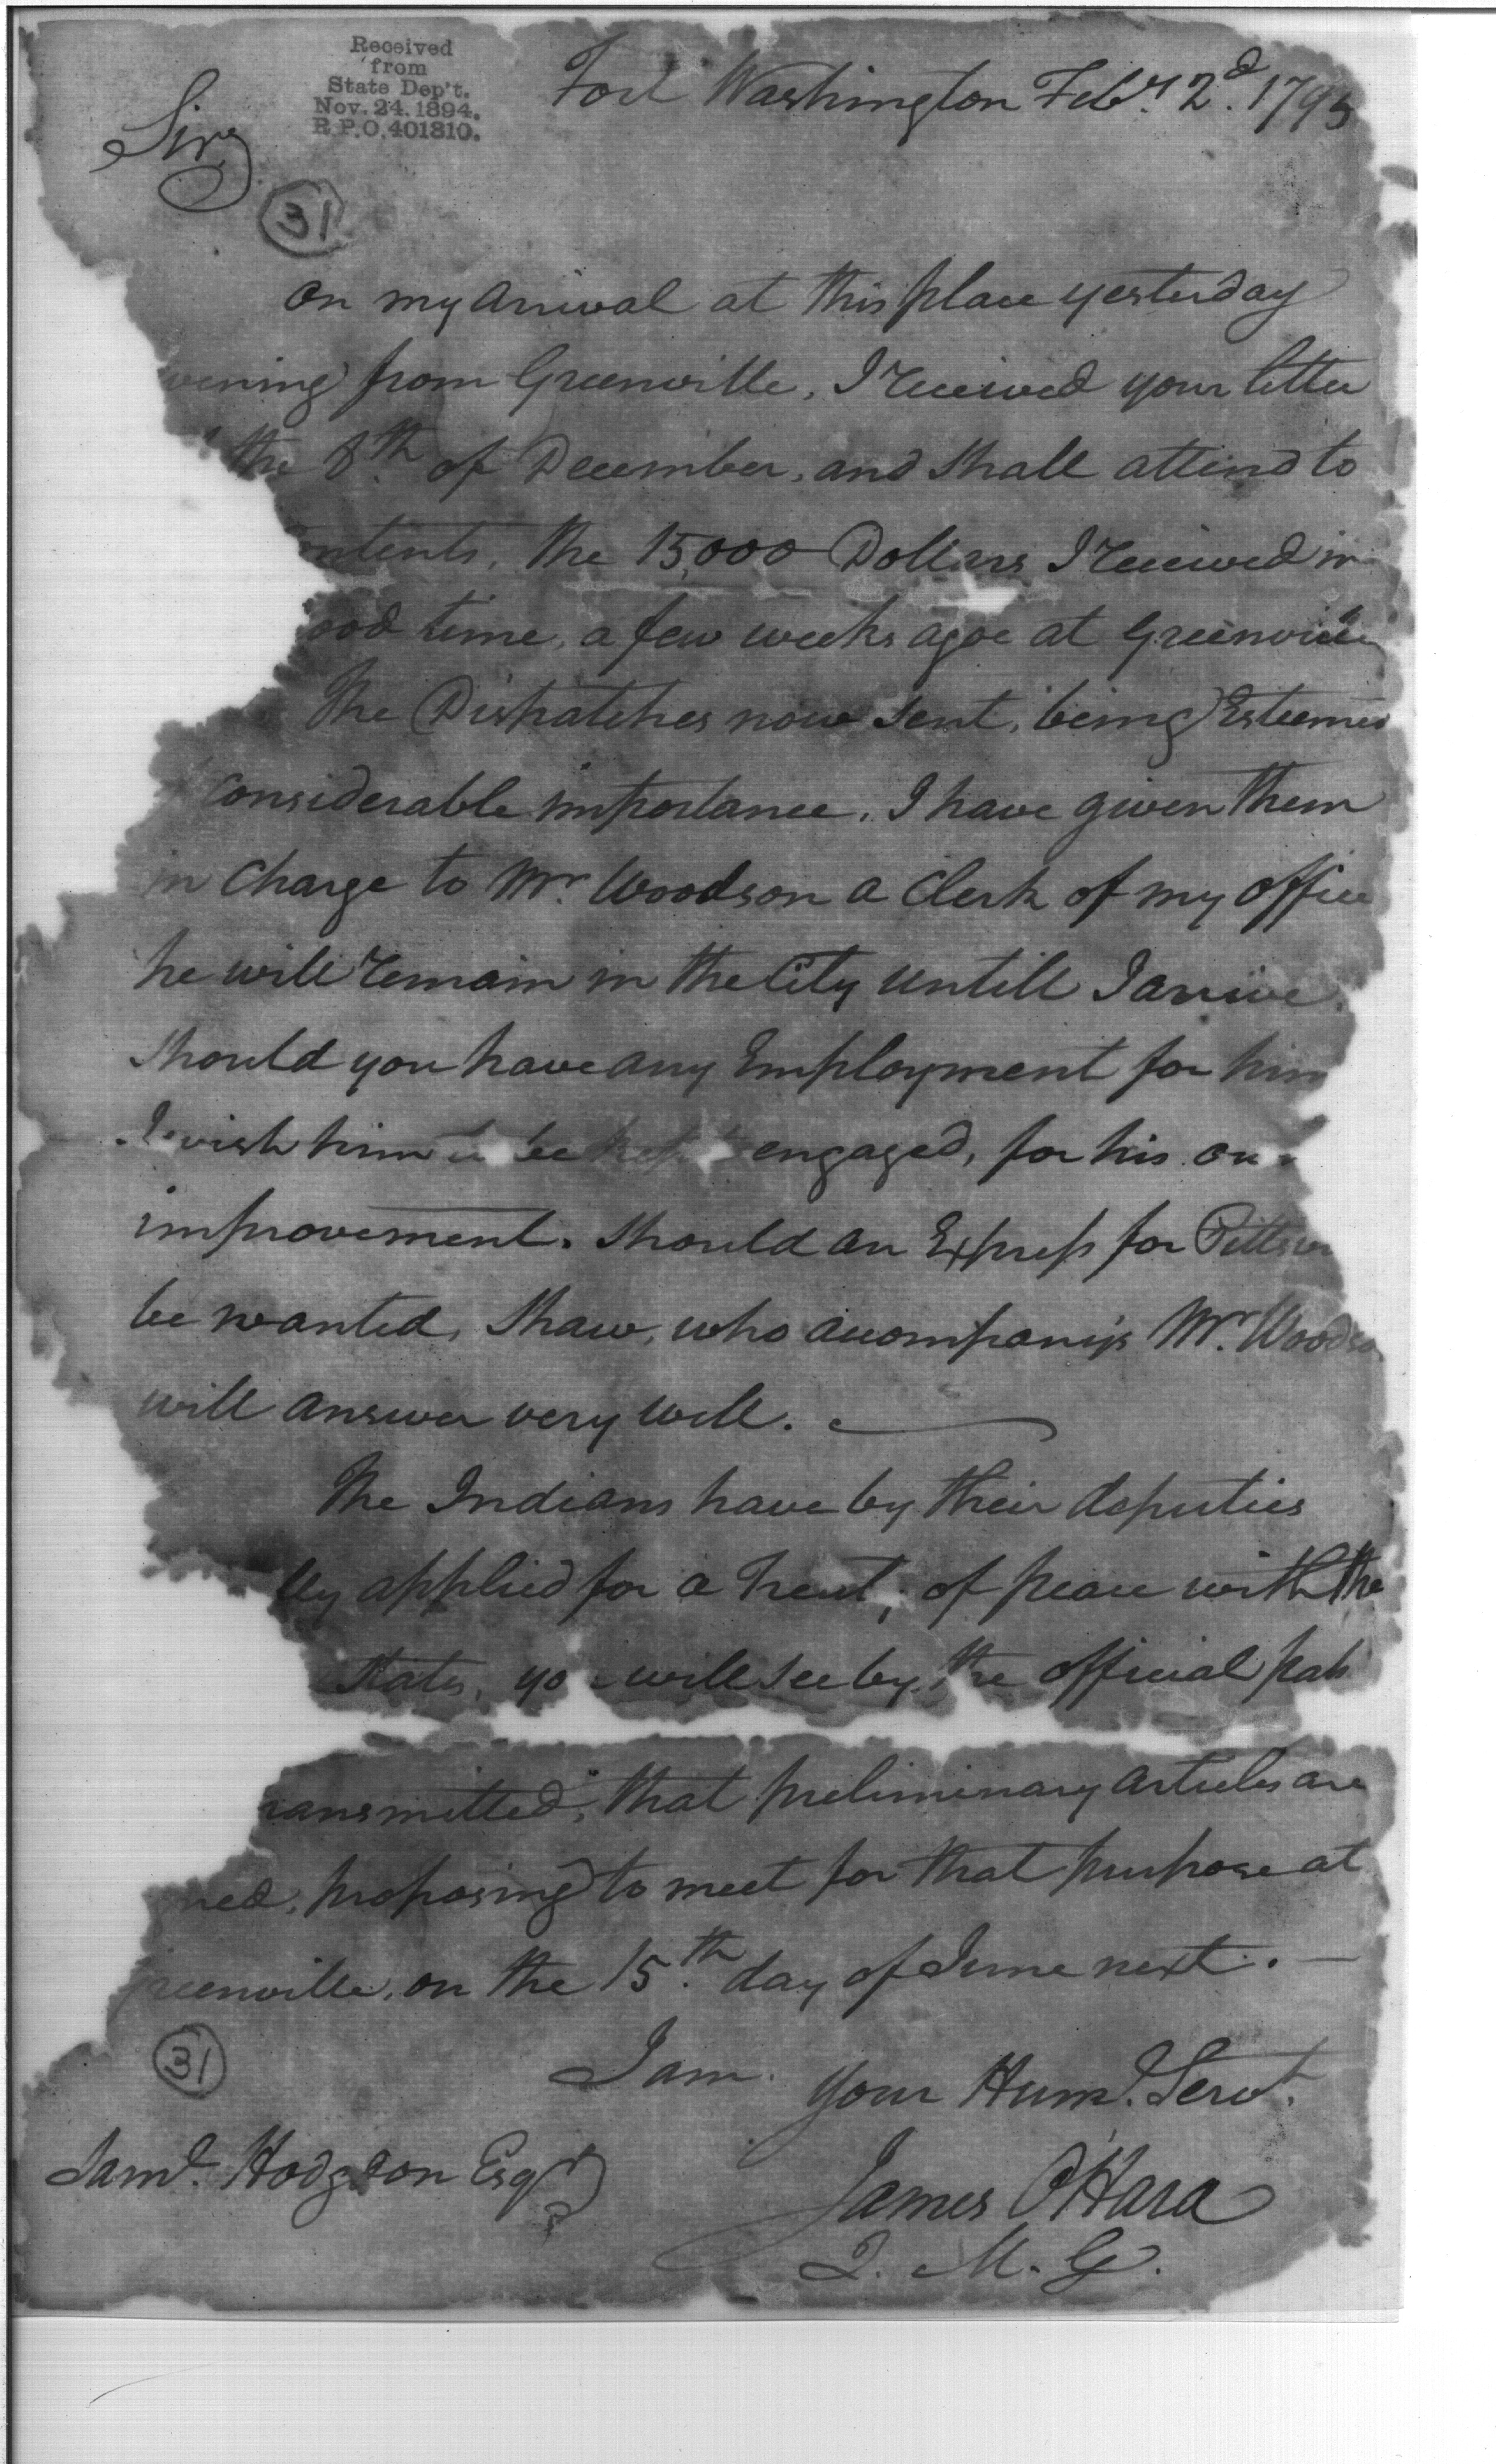 Received
from
State Dep't.
Nov. 24. 1894.
R.P.O. 401810.
Fort Washington Feby. 2d. 1795
Sir,
31
On my arrival at this place yesterday
vening from Greenville, I received your letter
the 8th. of December, and shall attend to
ntents, the 15,000 Dollars I received in
ood time, a few weeks agoe at Greenville
The Dispatches now sent, being Esteemed
considerable importance, I have given them
in Charge to Mr. Woodson a Clerk of my office
he will remain in the City untill I arrive.
Should you have any Employment for him
I wish him to be kept engaged, for his own
improvement. Should an Express for Pittsbur
be wanted, Shaw, who accompanys Mr. Woodso
will answer very well.
The Indians have by their deputies
lly applied for a treaty of peace with the
States, yo will see by the official pap
ransmitted, that preliminary articles are
ned, proposing to meet for that purpose at
reenville, on the 15th. day of June next. —
I am
your Hume. Servt.
31
Saml. Hodgdon Esqr
James O'Hara
Q. M. G.